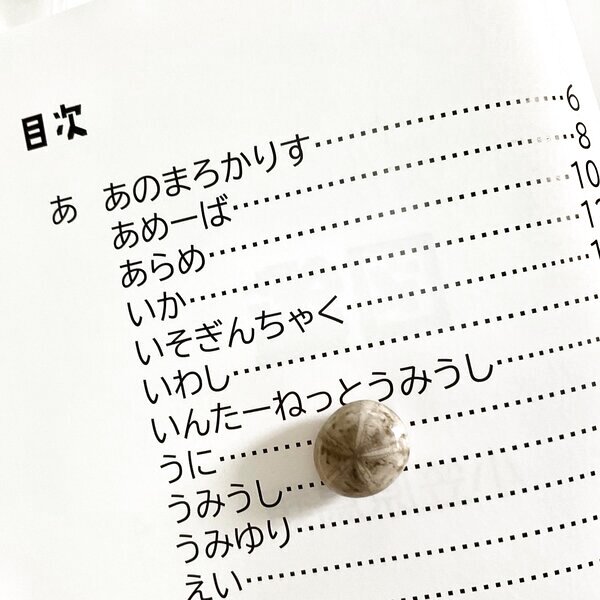 目次
あ あのまろかりす 6
あめーば 8
あらめ 10
いか
いそぎんちゃく
いわし
いんたーねっとうみうし
うに
うみうし
うみゆり
えい